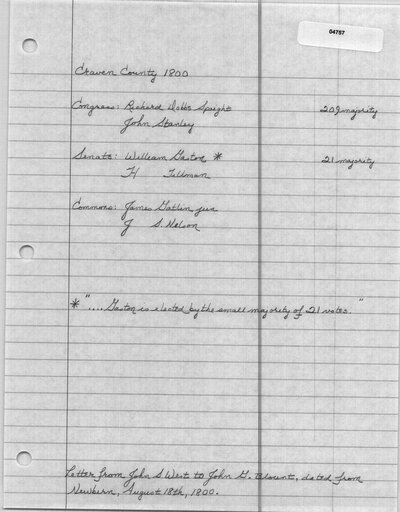 04757
Craven County 1800
Congress: Richard Dobbs Spaight 209 majority
John Stanley
Senate: William Gaston * 21 majority
H Tillman
Commons: James Gatlin jun
J S. Nelson
* ".... Gaston is elected by the small majority of 21 votes."
Letter from John S West to John G. Blount, dated from
Newbern, August 18th, 1800.